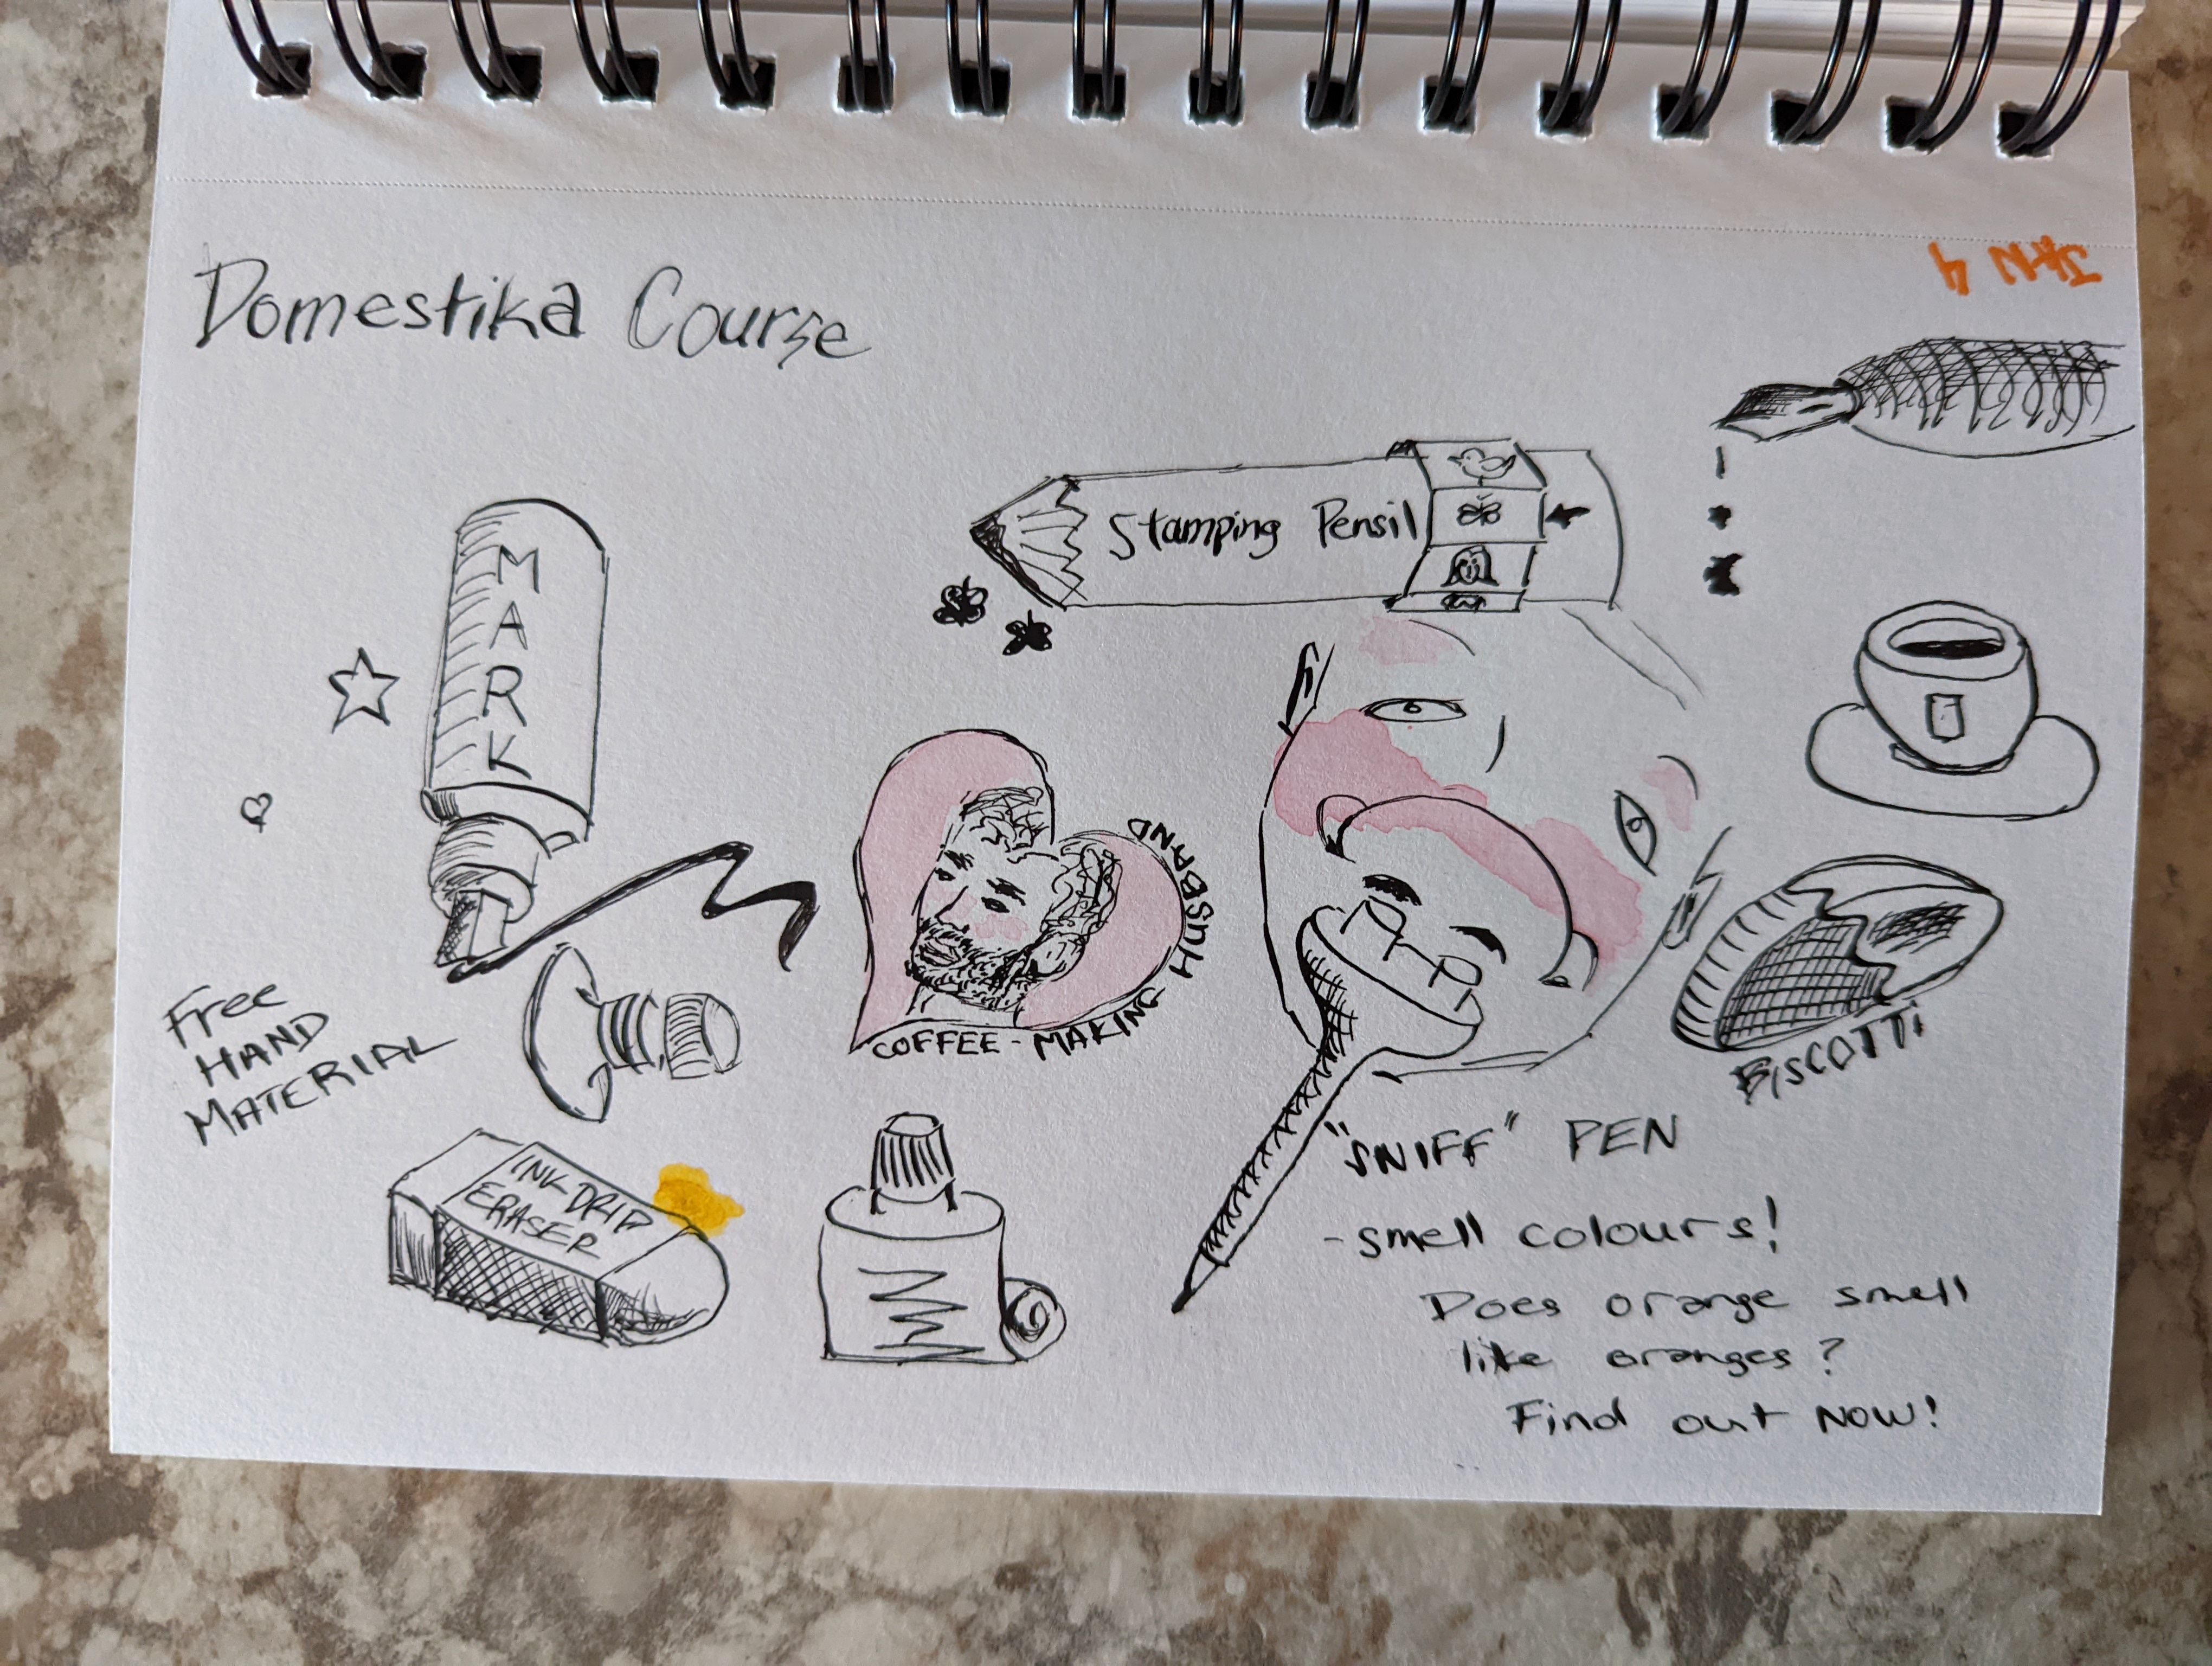 Domestika Course
JAN 4
MARK
Stamping Pensil
Free
HAND
MATERIAL
COFFEE-MAKING HUSBAND
BISCOTTI
INK DRIP
ERASER
"SNIFF" PEN
-smell colours!
Does orange smell
like oranges?
Find out NOW!